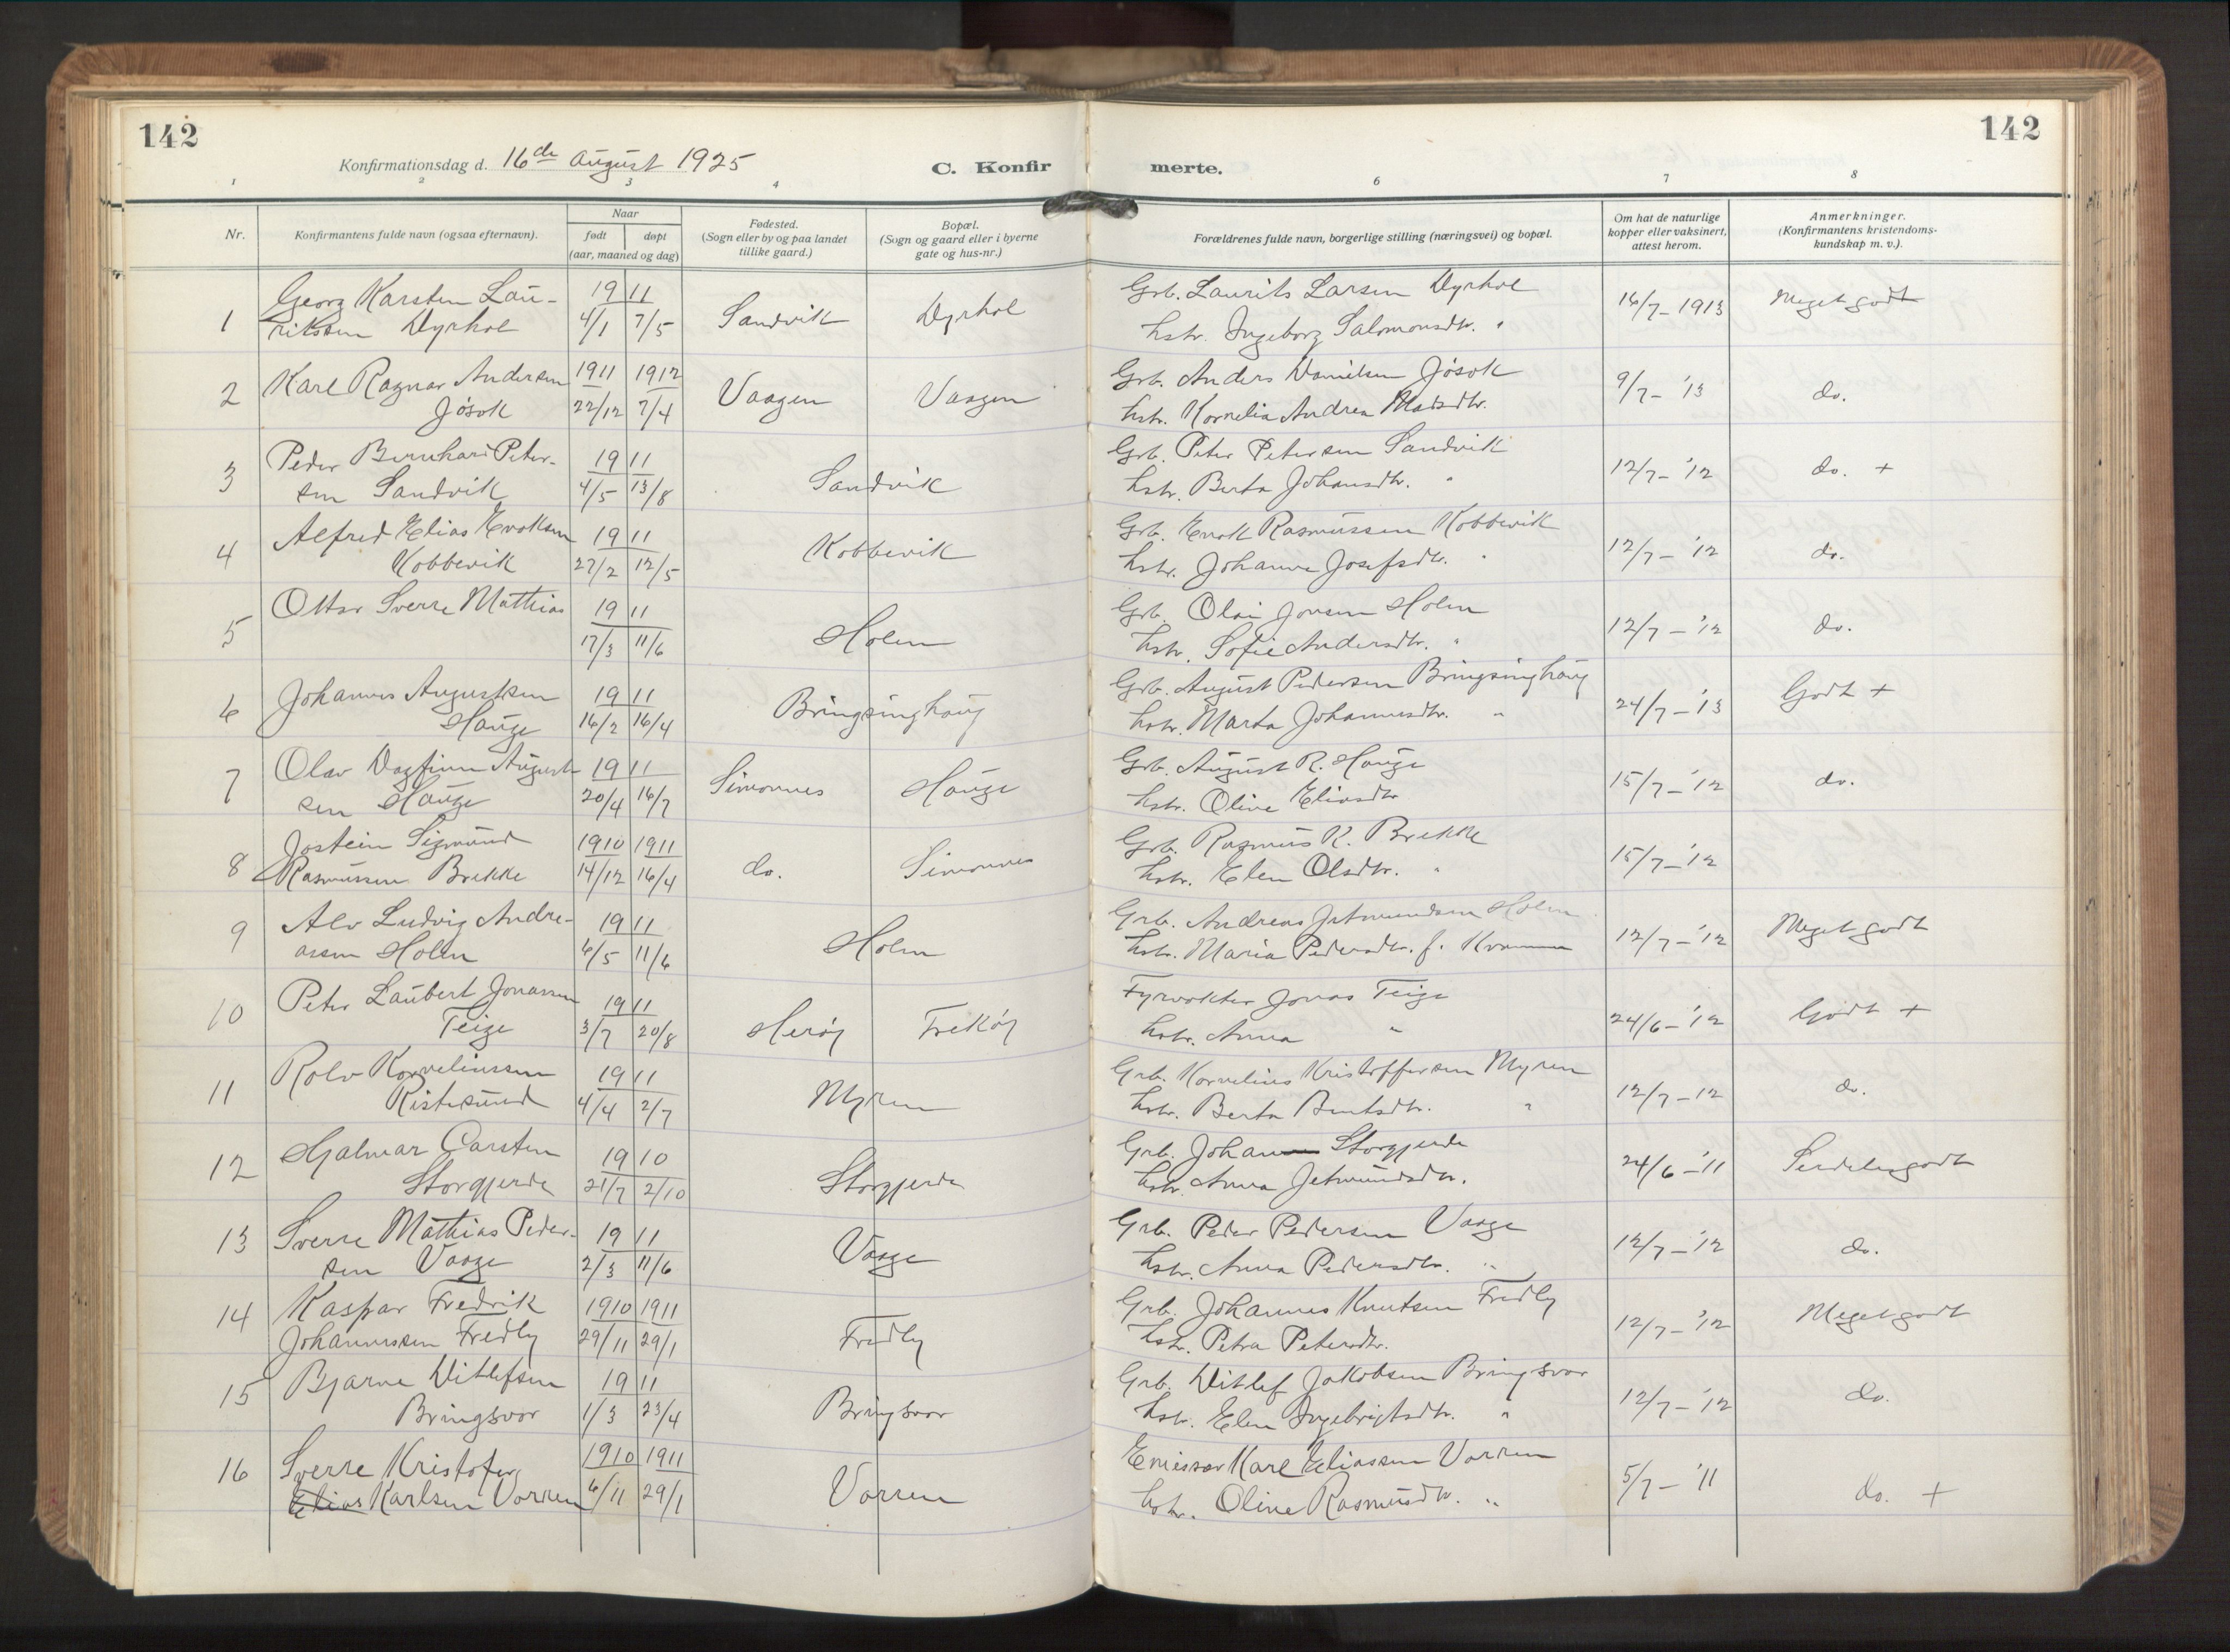 142
142
Konfirmationsdag d. 16de August 1925
C. Konfir
merte.
1 2 3 4 6 7 8
Nr.
Konfirmantens fulde navn (ogsaa efternavn).
Naar
født
døpt
(aar, maaned og dag)
Fødested.
(Sogn eller by og paa landet
tillike gaard.)
Bopæl.
(Sogn og gaard eller i byerne
gate og hus-nr.)
Forældrenes fulde navn, borgerlige stilling (næringsvei) og bopæl.
Om hat de naturlige
kopper eller vaksinert,
attest herom.
Anmerkninger.
(Konfirmantens kristendoms-
kundskap m. v.).
Georg Karsten Lau- 19 11 Grb. Laurits Larsen Dyrhol
1 ritssen Dyrhol 4/1 7/5 Sandvik Dyrhol hstr. Ingeborg Salomonsdtr. " 16/7-1913 Meget godt
Karl Ragnar Andersen 1911 1912 Grb. Anders Danielsen Jøsok
2 Jøsok 22/12 7/4 Vaagen Vaagen hstr. Kornelia Andrea Madsdtr. 9/7-'13 do.
Peder Bernhard Peter- 19 11 Grb. Peter Petersen Sandvik
3 sen Sandvik 4/5 13/8 Sandvik hstr. Berta Johansdtr. " 12/7-'12 do. +
Alfred Elias Enoksen 19 11 Grb. Enok Rasmussen Kobbevik
4 Kobbevik 27/2 12/5 Kobbevik hstr. Johanne Josefsdtr. " 12/7-'12 do.
Ottar Sverre Mathias 19 11 Grb. Olai Jonsen Holm
5 17/3 11/6 Holm hstr. Sofie Andersdtr. " 12/7-'12 do.
Johannes Augustsen 19 11 Grb. August Pedersen Bringsinghaug
6 Hauge 16/2 16/4 Bringsinghaug hstr. Marta Johannesdtr. " 24/7-'13 Godt +
Olav Dagfinn August- 19 11 Grb. August R. Hauge
7 sen Hauge 20/4 16/7 Simonnes Hauge hstr. Oline Eliasdtr 15/7-'12 do.
Jostein Sigmund 1910 1911 Grb. Rasmus K. Brekke
8 Rasmussen Brekke 14/12 16/4 do. Simonnes hstr. Elen Olsdtr. " 15/7-'12
Alv Ludvig Andre- 19 11 Grb. Andreas Jetmundsen Holm
9 assen Holm 6/5 11/6 Holm hstr. Maria Pedersdtr. f. Kvamme 12/7-'12 Meget godt
Peter Laubert Jonassen 19 11 Fyrvokter Jonas Teige
10 Teige 3/7 20/8 Herøy Frekøy hstr. Anna " 24/6-'12 Godt +
Rolv Korneliussen 19 11 Grb. Kornelius Kristoffersen Myren
11 Ristesund 4/4 2/7 Myren hstr. Berta Bentsdtr. " 12/7-'12 do.
Hjalmar Carsten 19 10 Grb. Johan Storgjerde
12 Storgjerde 21/7 2/10 Storgjerde hstr. Anna Jetmundsdtr. 24/6-'11 Serdeles godt
Sverre Mathias Peder- 19 11 Grb. Peder Pedersen Vaage
13 sen Vaage 2/3 11/6 Vaage hstr. Anna Pedersdtr. " 12/7-'12 do.
Kaspar Fredrik 1910 1911 Grb. Johannes Knutsen Fredly
14 Johannessen Fredly 29/11 29/1 Fredly hstr. Petra Petersdtr. 12/7-'12 Meget godt
Bjarne Ditlefsen 19 11 Grb. Ditlef Jakobsen Bringsvor
15 Bringsvor 1/3 23/4 Bringsvor hstr. Elen Ingebrigtsdtr. " 12/7-'12 do.
Sverre Kristofer 1910 1911 Emissær Karl Eliassen Vorren
16 Elias Karlsen Vorren 6/11 29/1 Vorren hstr. Oline Rasmusdtr. " 5/7-'11 do. +